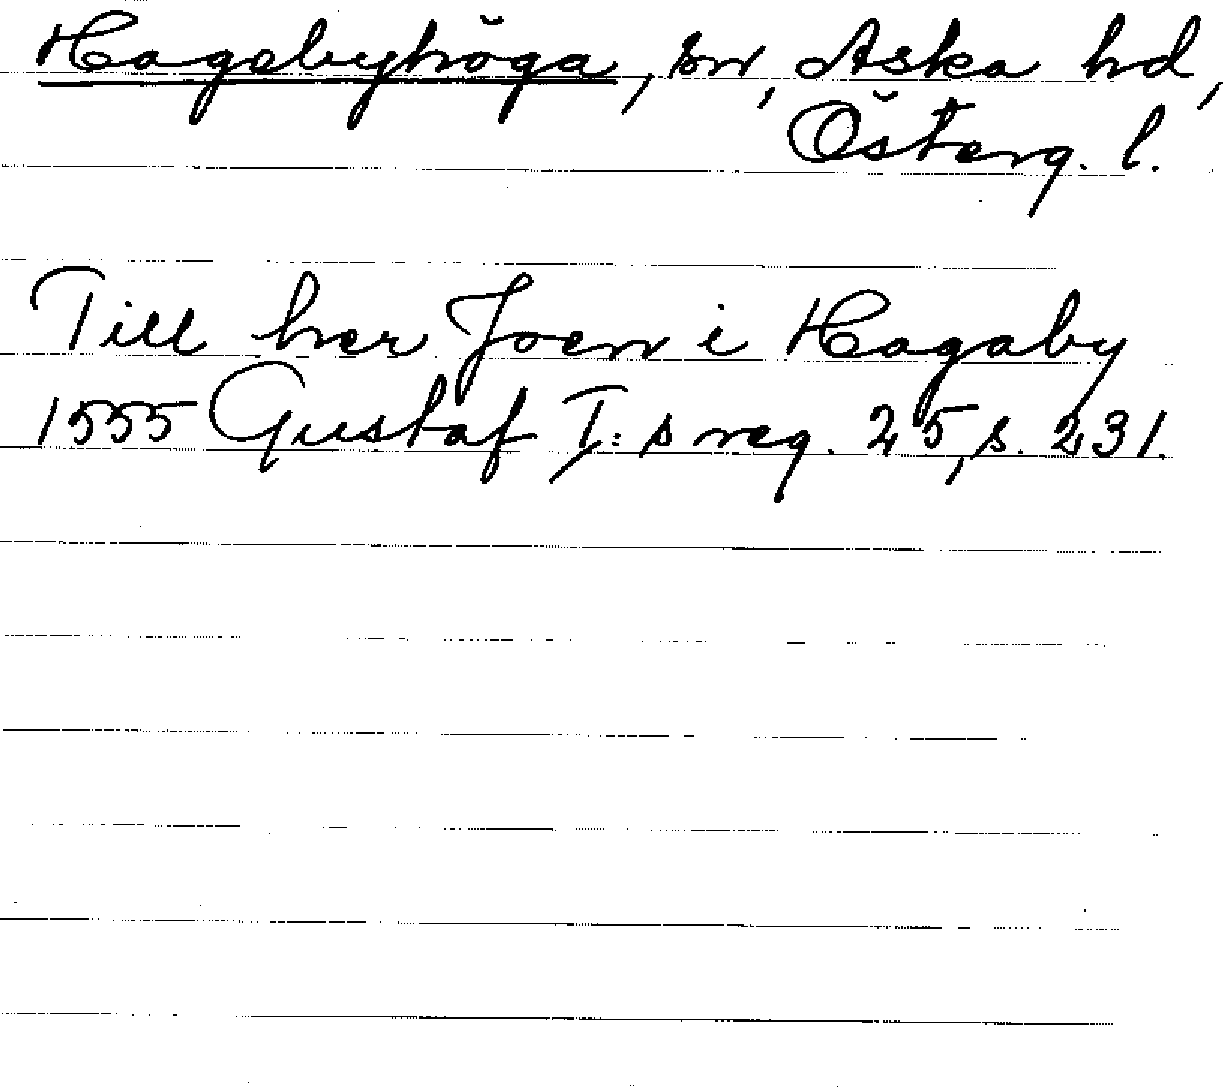 Hagebyhöga, sn, Aska hd,
Österg. l.
Till her Joen i Hagaby
1555 Gustaf I:s reg. 25, s. 231.